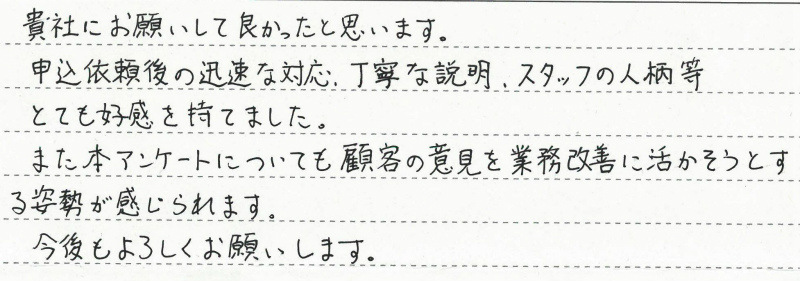 貴社にお願いして良かったと思います。
申込依頼後の迅速な対応、丁寧な説明、スタッフの人柄等
とても好感を持てました。
また本アンケートについても顧客の意見を業務改善に活かそうとす
る姿勢が感じられます。
今後もよろしくお願いします。